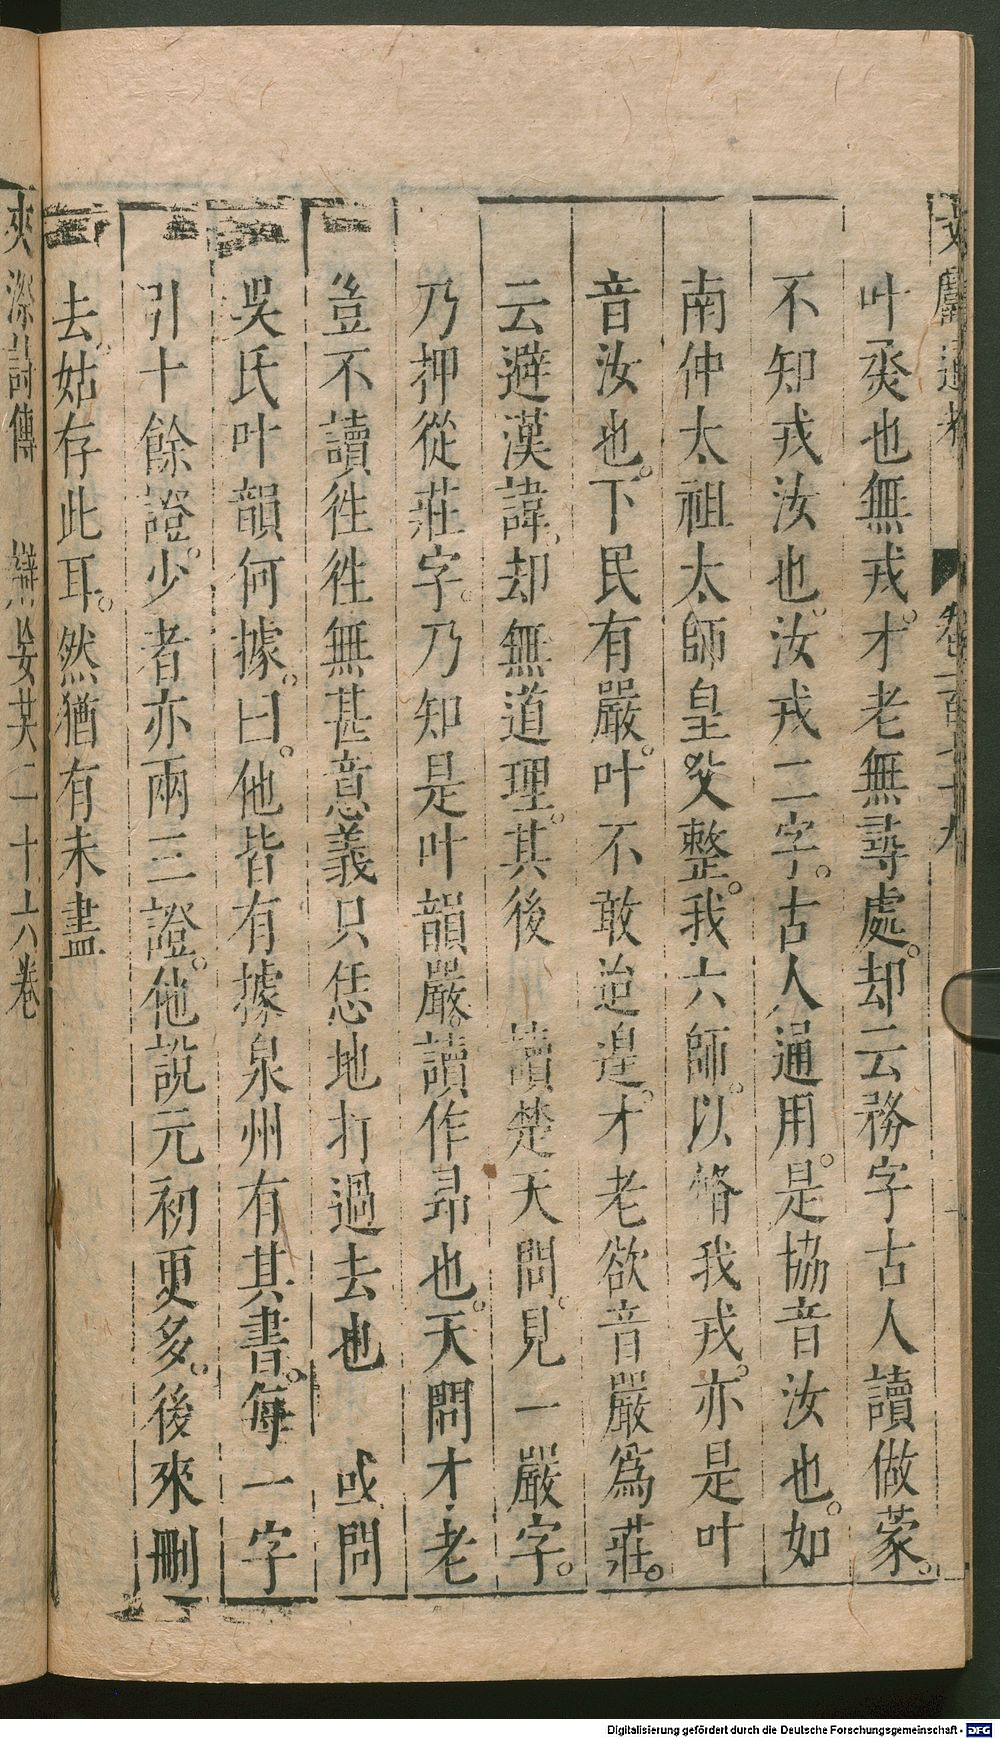 叶烝也無戎。才老無尋處。却云務字古人讀做蒙。
不知戎汝也。汝戎二字。古人通用。是協音汝也。如
南仲太祖太師皇父整。我六師。以脩我戎。亦是叶
音汝也。下民有嚴。叶不敢迨遑。才老欲音嚴爲莊。
云避漢諱。却無道理。其後 讀楚天問。見一嚴字。
乃押從莊字。乃知是叶韻嚴。讀作昂也。天問才老
豈不讀徃徃無甚意義只恁地打過去也 或問
吳氏叶韻何據。曰。他皆有據泉州有其書。每一字
引十餘證。少者亦兩三證。他說元初更多。後來刪
去。姑存此耳。然猶有未盡
夾漈詩傳 辯妄共二十六卷
Digitalisierung gefördert durch die Deutsche Forschungsgemeinschaft - DFG